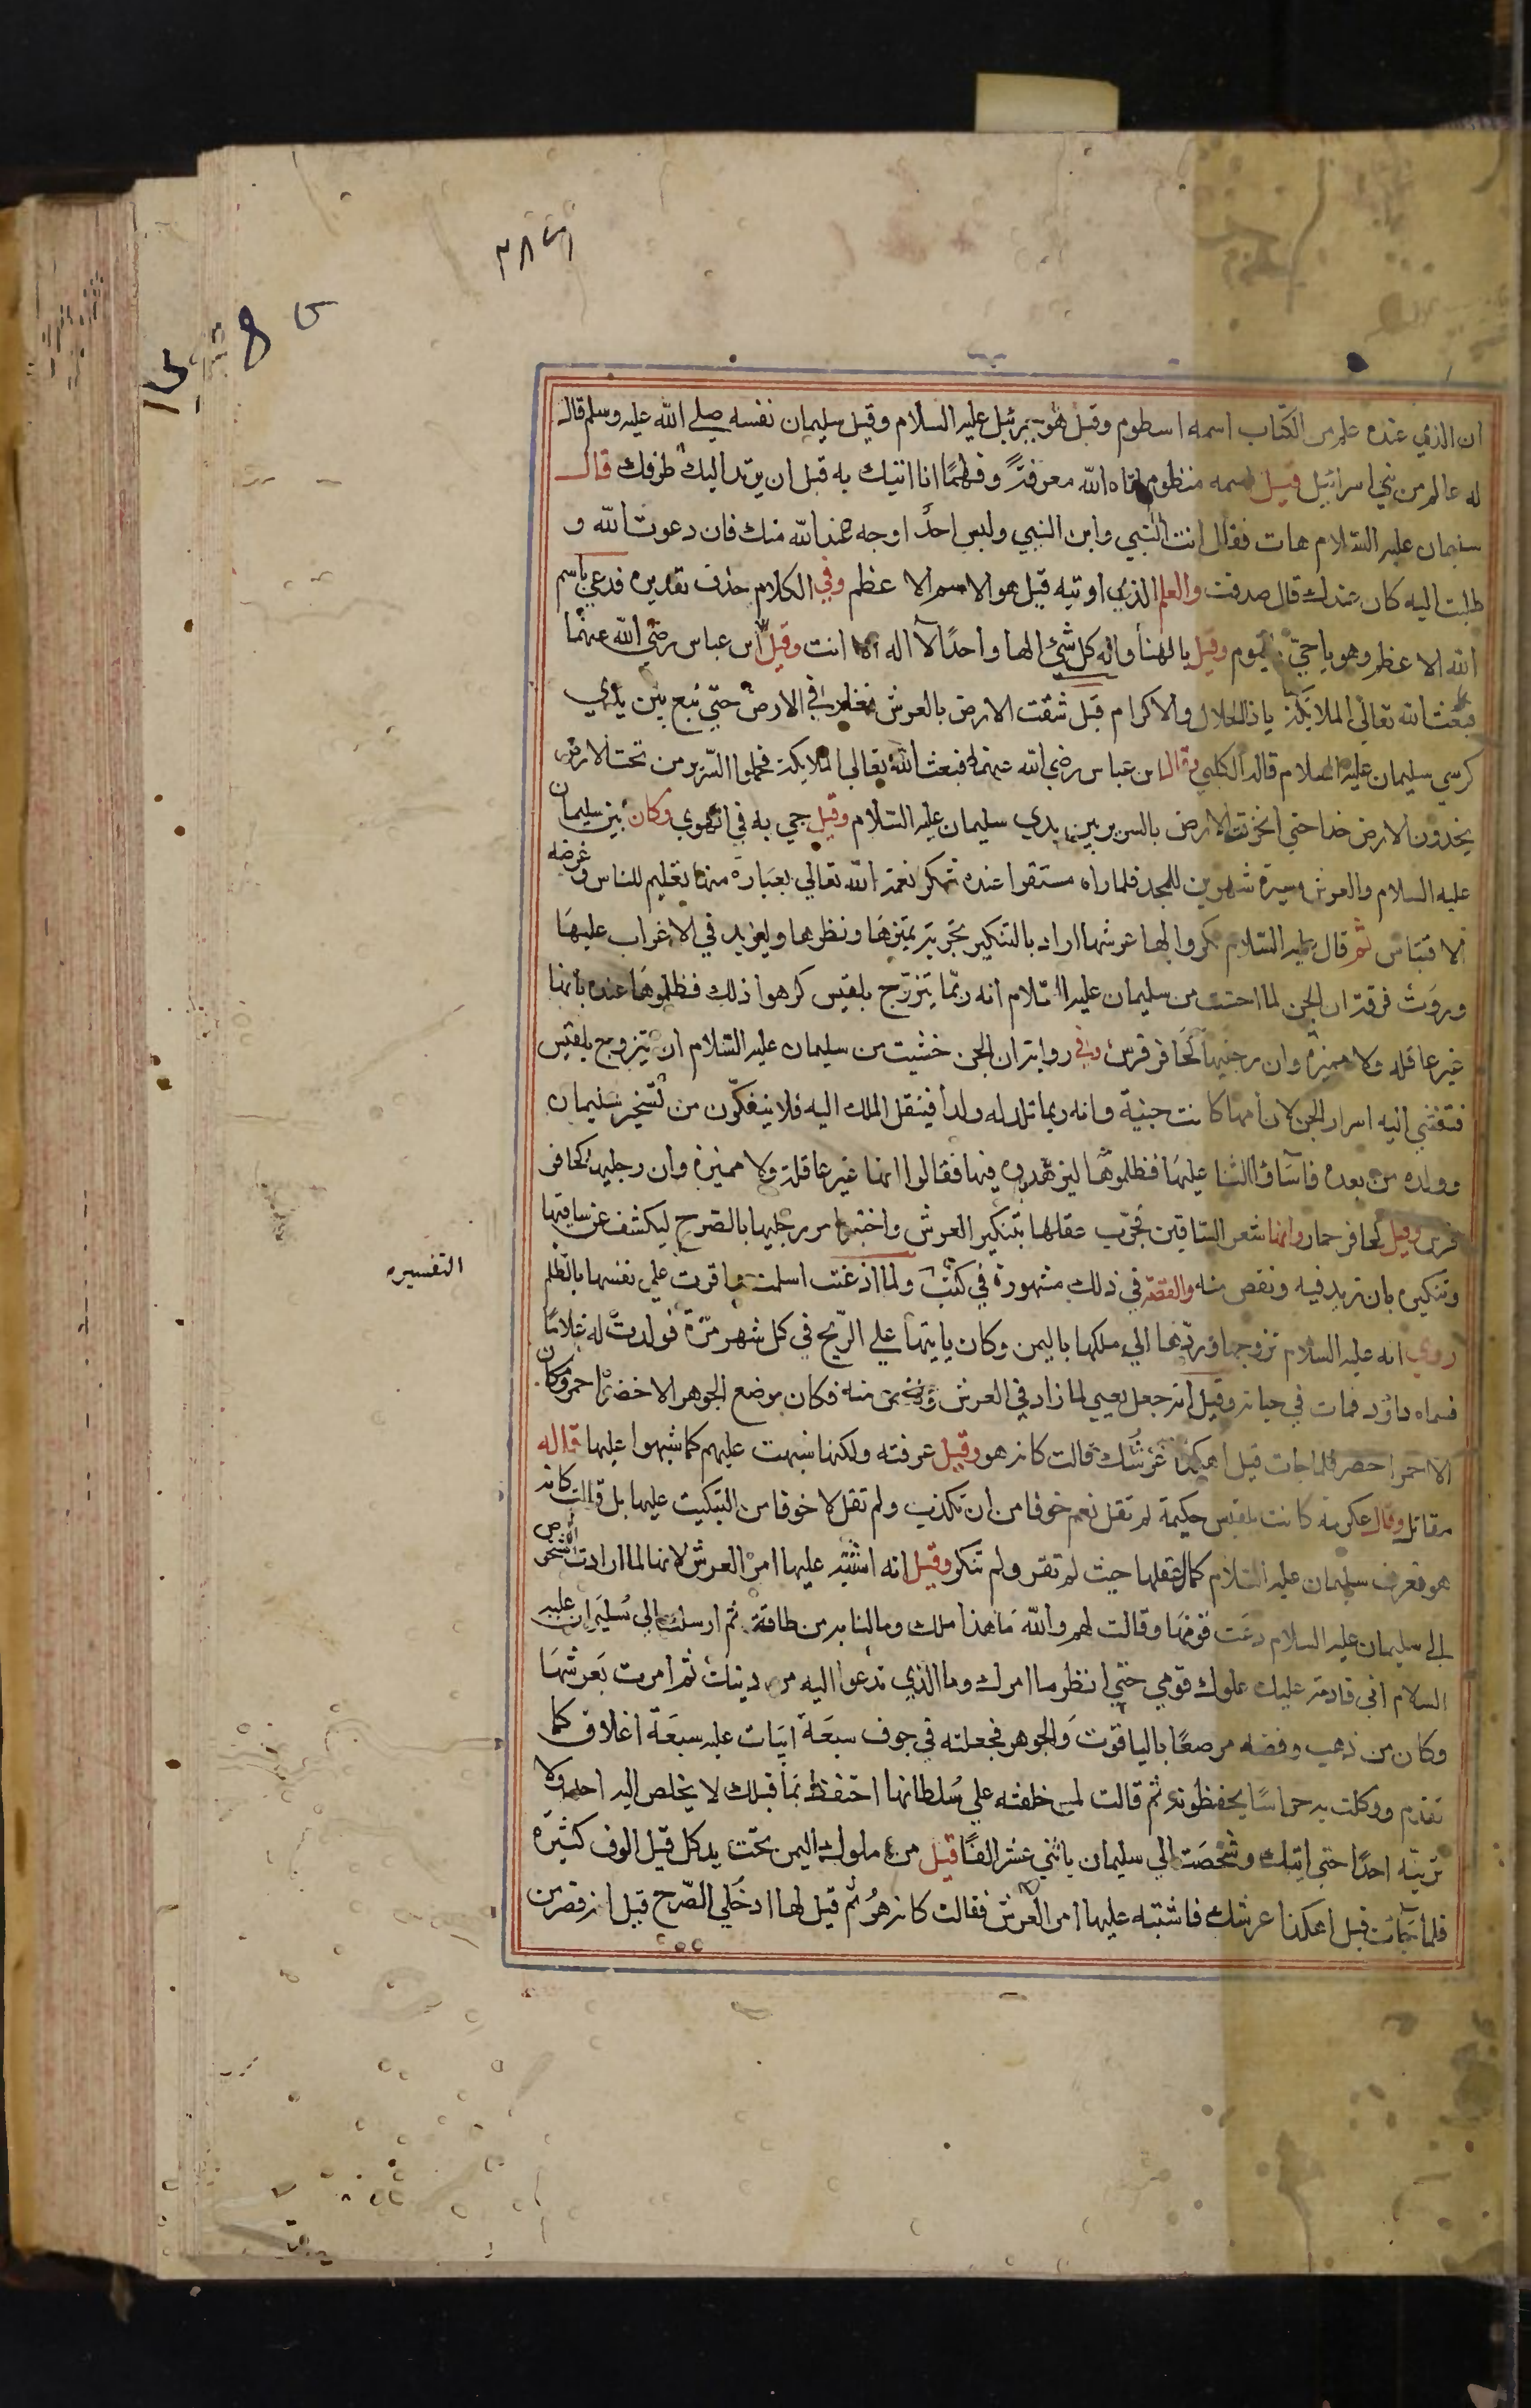 ٣٨٦
ان الذي عنده علم من الكتاب اسمه اسطوم وقيل هو جبرئيل عليه السلام وقيل سليمان نفسه صلى الله عليه وسلم قال
له عالم من بني اسرائيل قيل اسمه منظوم اتاه الله معرفةً وفهمًا انا اتيك به قبل ان يرتد اليك طرفك قال
سليمان عليه السلام هات فقال انت النبي وابن النبي وليس احدٌ اوجه عند الله منك فان دعوت الله و
طلبت اليه كان عندك قال صدقت والعلم الذي اوتيه قيل هو الاسم الاعظم وفي الكلام حذف تقديره فدعي باسم
الله الاعظم وهو يا حيّ يا قيوم وقيل يا الهنا واله كل شئ الها واحدًا لا اله الا انت وقيل ابن عباس رضي الله عنهما
فبعث الله تعالى الملائكة يا ذا الجلال والاكرام قبل شقت الارض بالعرش فغار في الارض حتي نبع بين يدي
كرسي سليمان عليه السلام قاله الكلبي وقال ابن عباس رضي الله عنهما فبعث الله تعالي الملائكة فحملوا السرير من تحت الارض
يخدون الارض خدا حتي انخرقت الارض بالسرير بين يدي سليمان عليه السلام وقيل جي به في الهوي وكان بين سليمان
عليه السلام والعرش مسيرة شهرين للمجد فلما راه مستقرا عنده شكر نعمة الله تعالي بعبارة منها تعليم للناس وعرضه
الاقتباس ثم قال عليه السلام نكروا لها عرشها اراد بالتنكير تجربة تميزها ونظرها وليزيد في الاغراب عليها
وروت فرقة ان الجن لما احست من سليمان عليه السلام انه ربما يتزوج بلقيس كرهوا ذلك فظلموها عنده بانها
غير عاقله ولا مميزة وان رجليها كحافر فرس وفي رواية ان الجن خشيت من سليمان عليه السلام ان يتزوج بلقيس
فتفشي اليه اسرار الجن لان امها كانت جنية وانه ربما تلد له ولدا فينتقل الملك اليه فلا ينفكون من تسخير سليمان
وولده من بعده فاساؤا الثنا عليها فظلموها ليزهدوه فيها فقالوا انها غير عاقلة ولا مميزة وان رجليها كحافر
فرس وقيل كحافر حمار وانها شعر الساقين فجرّب عقلها بتنكير العرش واختبر امر رجليها بالصرح ليكشف عن ساقيها
وتنكيره بان تزيد فيه ونقص منه والقصة في ذلك مشهورة في كتب ولما اذعنت اسلمت واقرت علي نفسها بالظلم
التفسيره
روي انه عليه السلام تزوجها وردها الي ملكها باليمن وكان ياتيها علي الريح في كل شهر مرّة فولدت له غلامًا
فسماه داؤد فمات في حياته وقيل انه جعل يعني لما زاد في العرش ونقص منه فكان موضع الجوهر الاخضر احمر ومكان
الاحمر اخضر فلما جات قيل اهكذا عرشك قالت كانه هو وقيل عرفته ولكنها شبهت عليهم كما شبهوا عليها قاله
مقاتل وقال عكرمة كانت بلقيس حكيمة لم تقل نعم خوفا من ان تكذب ولم تقل لا خوفا من التبكيت عليها بل قالت كانه
هو فعرف سليمان عليه السلام كمال عقلها حيث لم تقر ولم تنكر وقيل انه اشتبه عليها امر العرش لانها لما ارادت الشخوص
الي سليمان عليه السلام دعت قومها وقالت لهم والله ما هذا ملك وما لنا به من طاقة ثم ارسلت الي سليمان عليه
السلام اني قادمة عليك بملوك قومي حتي انظر ما امرك وما الذي تدعوا اليه من دينك ثم امرت بعرشها
وكان من ذهب وفضه مرصعًا بالياقوت والجوهر فجعلته في جوف سبعة ابيات عليه سبعة اغلاق كما
تقدم ووكلت به حراسًا يحفظونه ثم قالت لمن خلفته علي سلطانها احتفظ بما قبلك لا يخلص اليه احد ولا
ترينّه احدًا حتى اتيك وشخصت الي سليمان باثني عشر الفًا قيل من ملوك اليمن تحت يد كل قيل الوف كثيرة
فلما جات قيل اهكذا عرشك فاشتبه عليها امر العرش فقالت كانه هو ثم قيل لها ادخلي الصّرح قيل انه قصر من